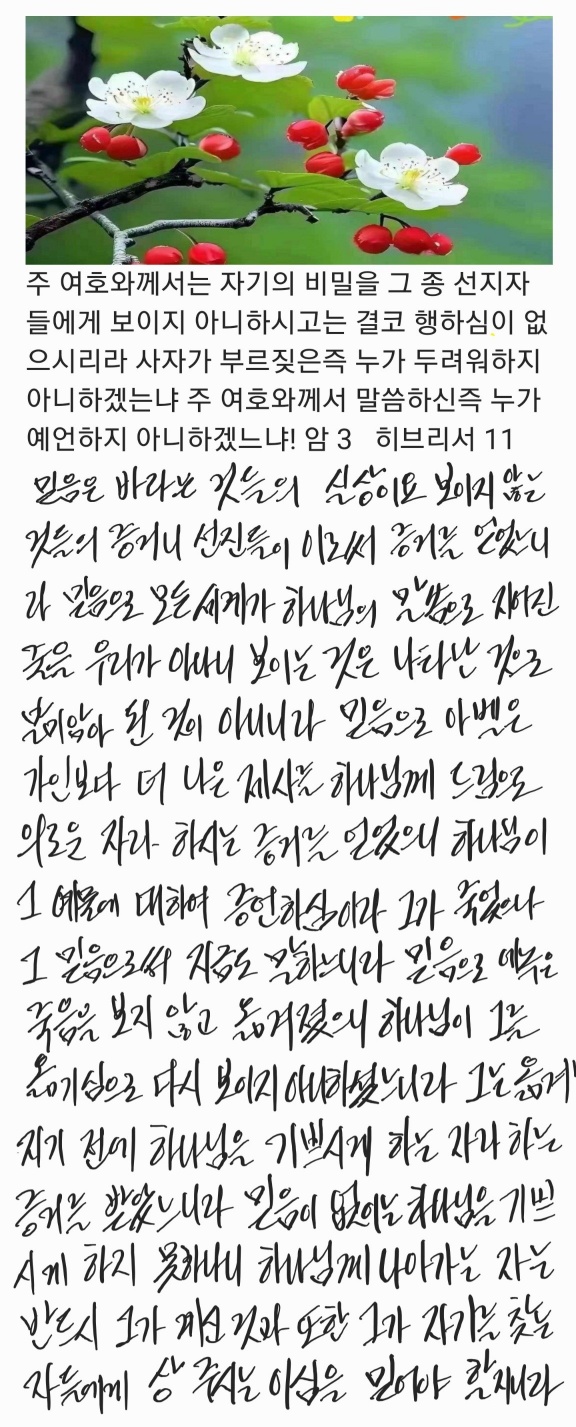 주 여호와께서는 자기의 비밀을 그 종 선지자
들에게 보이지 아니하시고는 결코 행하심이 없
으시리라 사자가 부르짖은즉 누가 두려워하지
아니하겠는냐 주 여호와께서 말씀하신즉 누가
예언하지 아니하겠느냐! 암 3 히브리서 11
믿음은 바라는 것들의 실상이요 보이지 않는
것들의 증거니 선진들이 이로써 증거를 얻었느니
라 믿음으로 모든 세계가 하나님의 말씀으로 지어진
줄을 우리가 아나니 보이는 것은 나타난 것으로
말미암아 된 것이 아니니라 믿음으로 아벨은
가인보다 더 나은 제사를 하나님께 드림으로
의로운 자라 하시는 증거를 얻었으니 하나님이
그 예물에 대하여 증언하심이라 그가 죽었으나
그 믿음으로써 지금도 말하느니라 믿음으로 에녹은
죽음을 보지 않고 옮겨졌으니 하나님이 그를
옮기심으로 다시 보이지 아니하였느니라 그는 옮겨
지기 전에 하나님을 기쁘시게 하는 자라 하는
증거를 받았느니라 믿음이 없이는 하나님을 기쁘
시게 하지 못하나니 하나님께 나아가는 자는
반드시 그가 계신 것과 또한 그가 자기를 찾는
자들에게 상 주시는 이심을 믿어야 할지니라